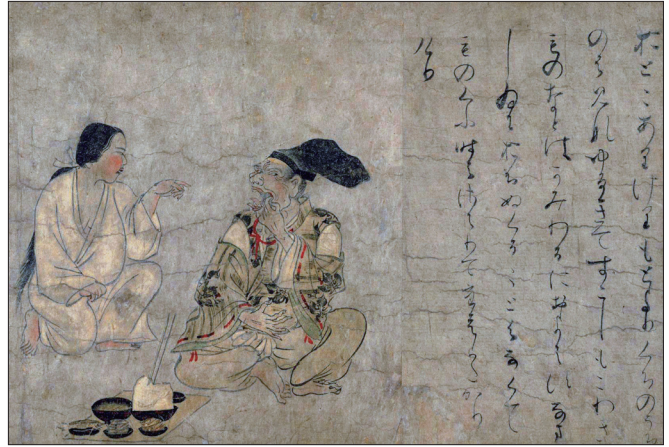 おとこありけりもとよりくちのうち
のはみなゆるきてすこしもこわき
ものなとはかみわるにおよはすなま
しゐにおちぬくることはなくて
ものくふ時はさはりてたえかたかり
けり